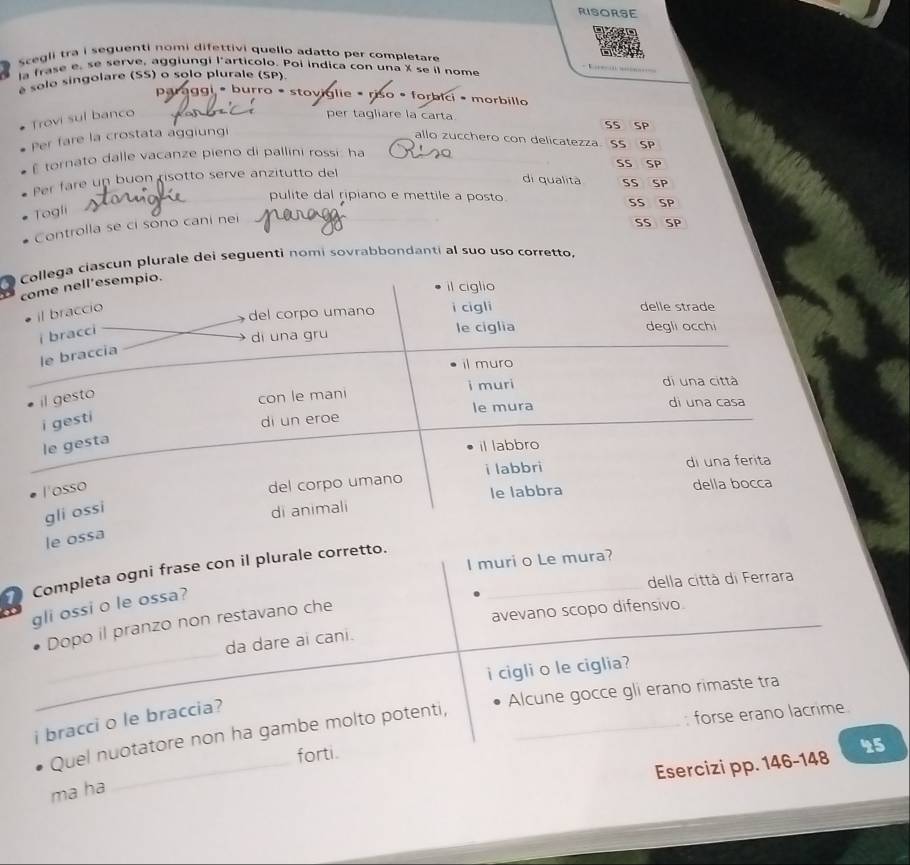 RISORSE
Scegli tra i seguenti nomi difettivi quello adatto per completare
la frase e, se serve, aggiungi l'articolo. Poi indica con una X se il nome
è solo singolare (SS) o solo plurale (SP).
paraggi • burro • stoviglie • riso • forbici • morbillo
• Trovi sul banco forbici per tagliare la carta. SS SP
• Per fare la crostata aggiungi allo zucchero con delicatezza. SS SP
• È tornato dalle vacanze pieno di pallini rossi: ha SS SP
• Per fare un buon risotto serve anzitutto del Riso di qualità. SS SP
• Togli stoviglie pulite dal ripiano e mettile a posto. SS SP
• Controlla se ci sono cani nei paragg SS SP
6 Collega ciascun plurale dei seguenti nomi sovrabbondanti al suo uso corretto,
come nell'esempio.
• il braccio
i bracci
le braccia
del corpo umano
di una gru
• il ciglio
i cigli
le ciglia
delle strade
degli occhi
• il gesto
i gesti
le gesta
con le mani
di un eroe
• il muro
i muri
le mura
di una città
di una casa
• l'osso
gli ossi
le ossa
del corpo umano
di animali
• il labbro
i labbri
le labbra
di una ferita
della bocca
7 Completa ogni frase con il plurale corretto.
gli ossi o le ossa?
• Dopo il pranzo non restavano che
da dare ai cani.
I muri o Le mura?
• della città di Ferrara
avevano scopo difensivo.
i bracci o le braccia?
• Quel nuotatore non ha gambe molto potenti,
ma ha forti.
i cigli o le ciglia?
• Alcune gocce gli erano rimaste tra
: forse erano lacrime.
Esercizi pp. 146-148
45